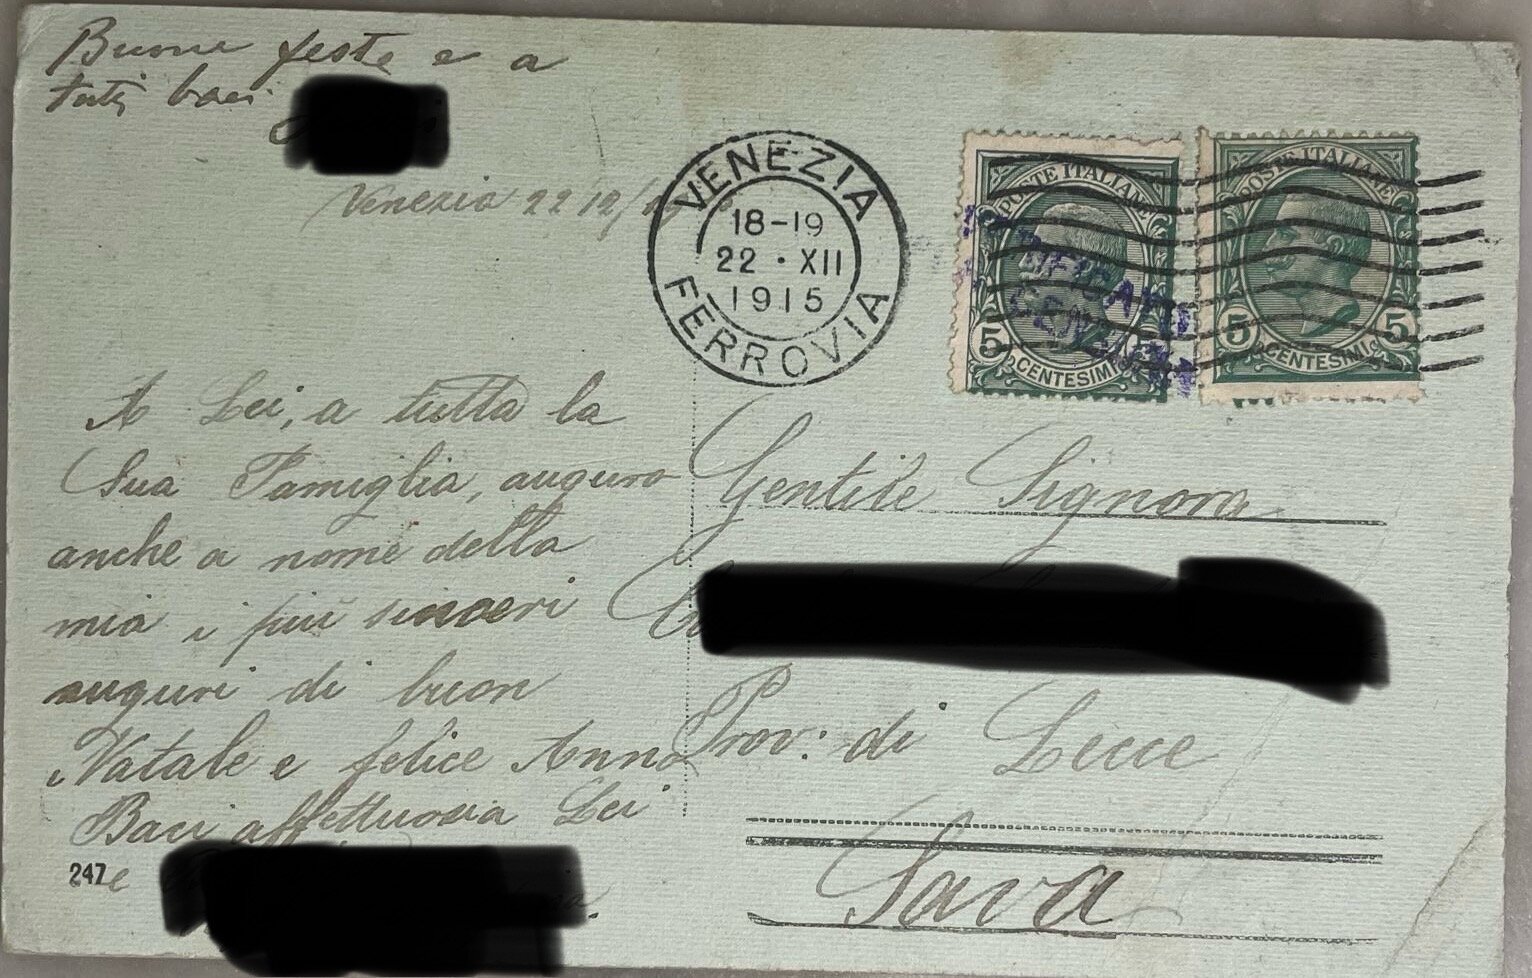 Buone feste e a
tutti baci
Venezia 22/12/15
VENEZIA
18-19
22 • XII
1915
FERROVIA
POSTE ITALIANE
5
CENTESIMI
POSTE ITALIANE
5 5
CENTESIMI
A Lei, a tutta la
Sua Famiglia, auguro
anche a nome della
mia i più sinceri
auguri di buon
Natale e felice Anno
Baci affettuosi a Lei
247 e
Gentile Signora
Prov: di Lecce
Sava